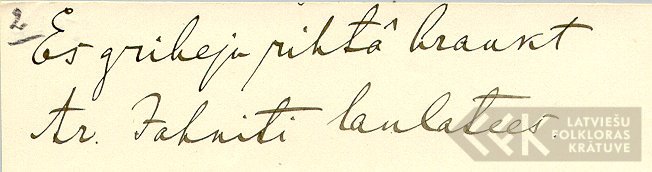 2
Es gribeju rihtâ braukt
Ar. Jahniti laulatees.
LATVIEŠU
FOLKLORAS
KRĀTUVE